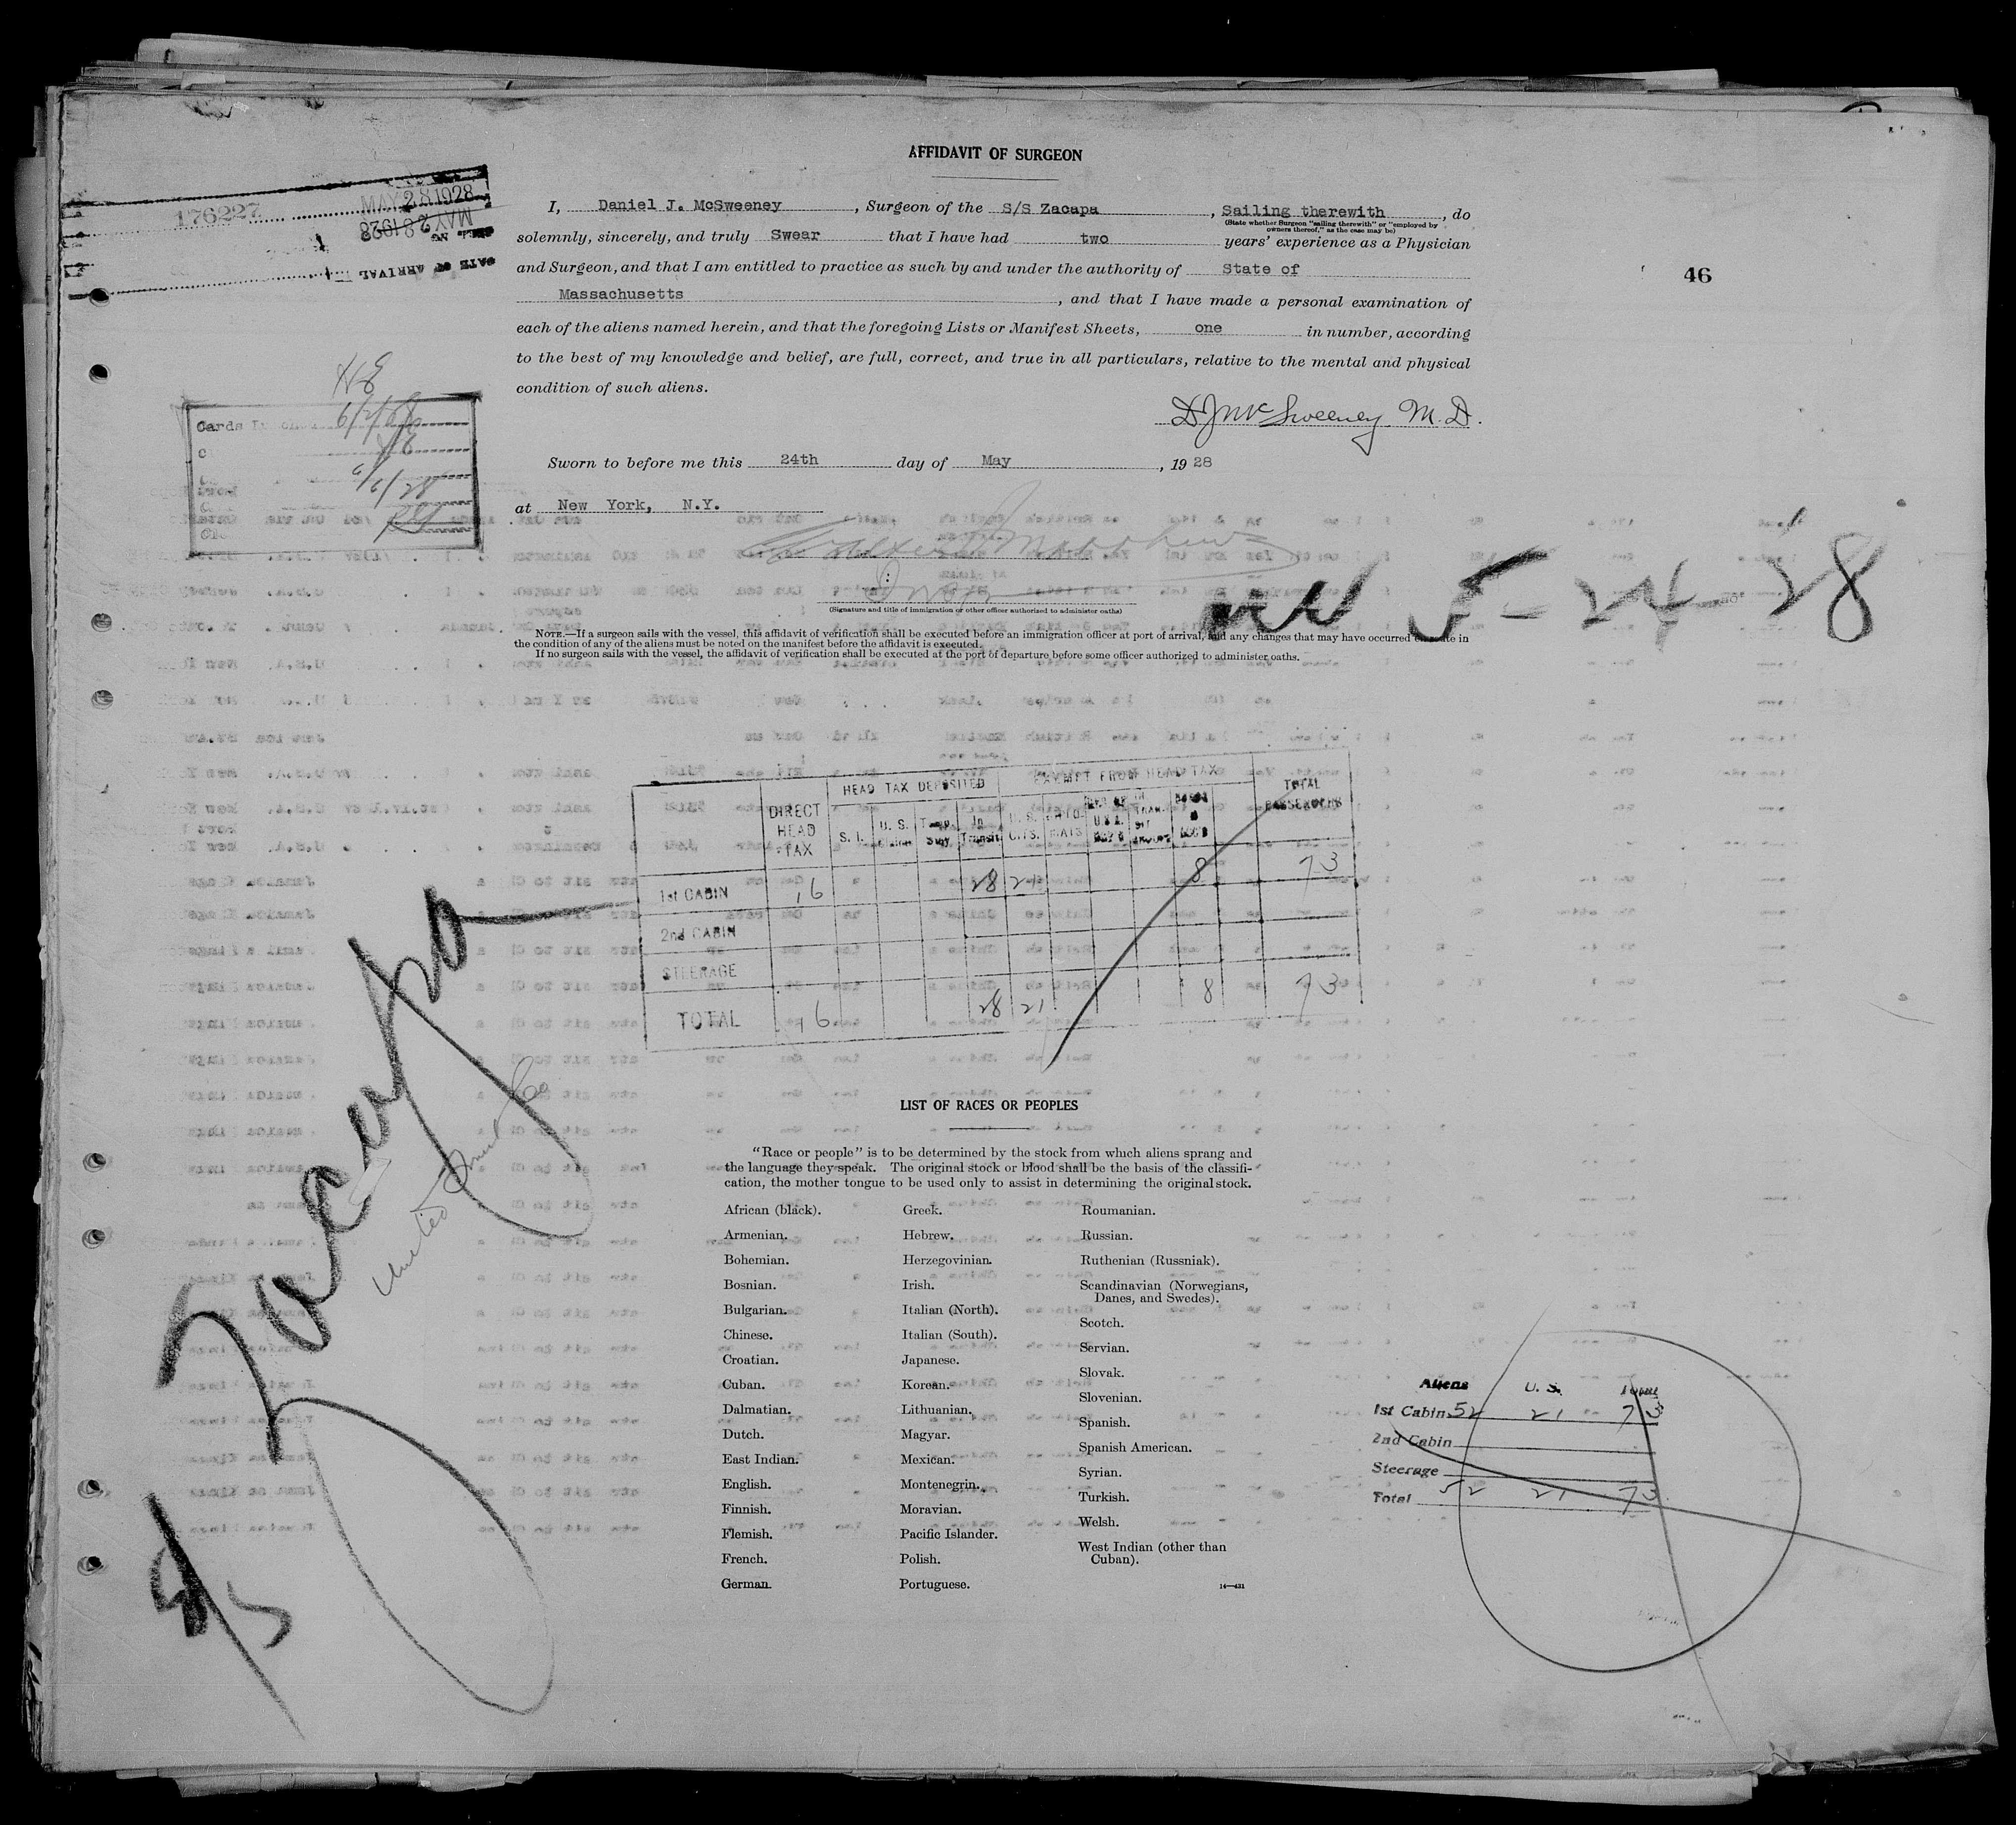 AFFIDAVIT OF SURGEON
176227 MAY 28 1928
MAY 28 1928
DATE OF ARRIVAL
I, Daniel J. McSweeney, Surgeon of the S/S Zacapa, Sailing therewith, do
(State whether Surgeon "sailing therewith" or "employed by
owners thereof," as the case may be)
solemnly, sincerely, and truly Swear that I have had two years' experience as a Physician
and Surgeon, and that I am entitled to practice as such by and under the authority of State of
Massachusetts, and that I have made a personal examination of
each of the aliens named herein, and that the foregoing Lists or Manifest Sheets, one in number, according
to the best of my knowledge and belief, are full, correct, and true in all particulars, relative to the mental and physical
condition of such aliens.
46
D J McSweeney M.D.
Sworn to before me this 24th day of May, 1928
at New York, N.Y.
(Signature and title of immigration or other officer authorized to administer oaths)
5-24-28
NOTE.—If a surgeon sails with the vessel, this affidavit of verification shall be executed before an immigration officer at port of arrival, and any changes that may have occurred en route in
the condition of any of the aliens must be noted on the manifest before the affidavit is executed.
If no surgeon sails with the vessel, the affidavit of verification shall be executed at the port of departure before some officer authorized to administer oaths.
Cards
6/6/28
DIRECT HEAD TAX
HEAD TAX DEPOSITED
EXEMPT FROM HEAD TAX
TOTAL PASSENGERS
S. I. U. S. Temp. Stay In Transit U. S. CITS.
1st CABIN 16 28 21 8 73
2nd CABIN
STEERAGE
TOTAL 16 28 21 8 73
Zacapa
United Fruit Co
LIST OF RACES OR PEOPLES
"Race or people" is to be determined by the stock from which aliens sprang and
the language they speak. The original stock or blood shall be the basis of the classifi-
cation, the mother tongue to be used only to assist in determining the original stock.
African (black).
Armenian.
Bohemian.
Bosnian.
Bulgarian.
Chinese.
Croatian.
Cuban.
Dalmatian.
Dutch.
East Indian.
English.
Finnish.
Flemish.
French.
German.
Greek.
Hebrew.
Herzegovinian.
Irish.
Italian (North).
Italian (South).
Japanese.
Korean.
Lithuanian.
Magyar.
Mexican.
Montenegrin.
Moravian.
Pacific Islander.
Polish.
Portuguese.
Roumanian.
Russian.
Ruthenian (Russniak).
Scandinavian (Norwegians,
Danes, and Swedes).
Scotch.
Servian.
Slovak.
Slovenian.
Spanish.
Spanish American.
Syrian.
Turkish.
Welsh.
West Indian (other than
Cuban).
14—431
Aliens U. S. Total
1st Cabin 52 21 73
2nd Cabin
Steerage
Total 52 21 73